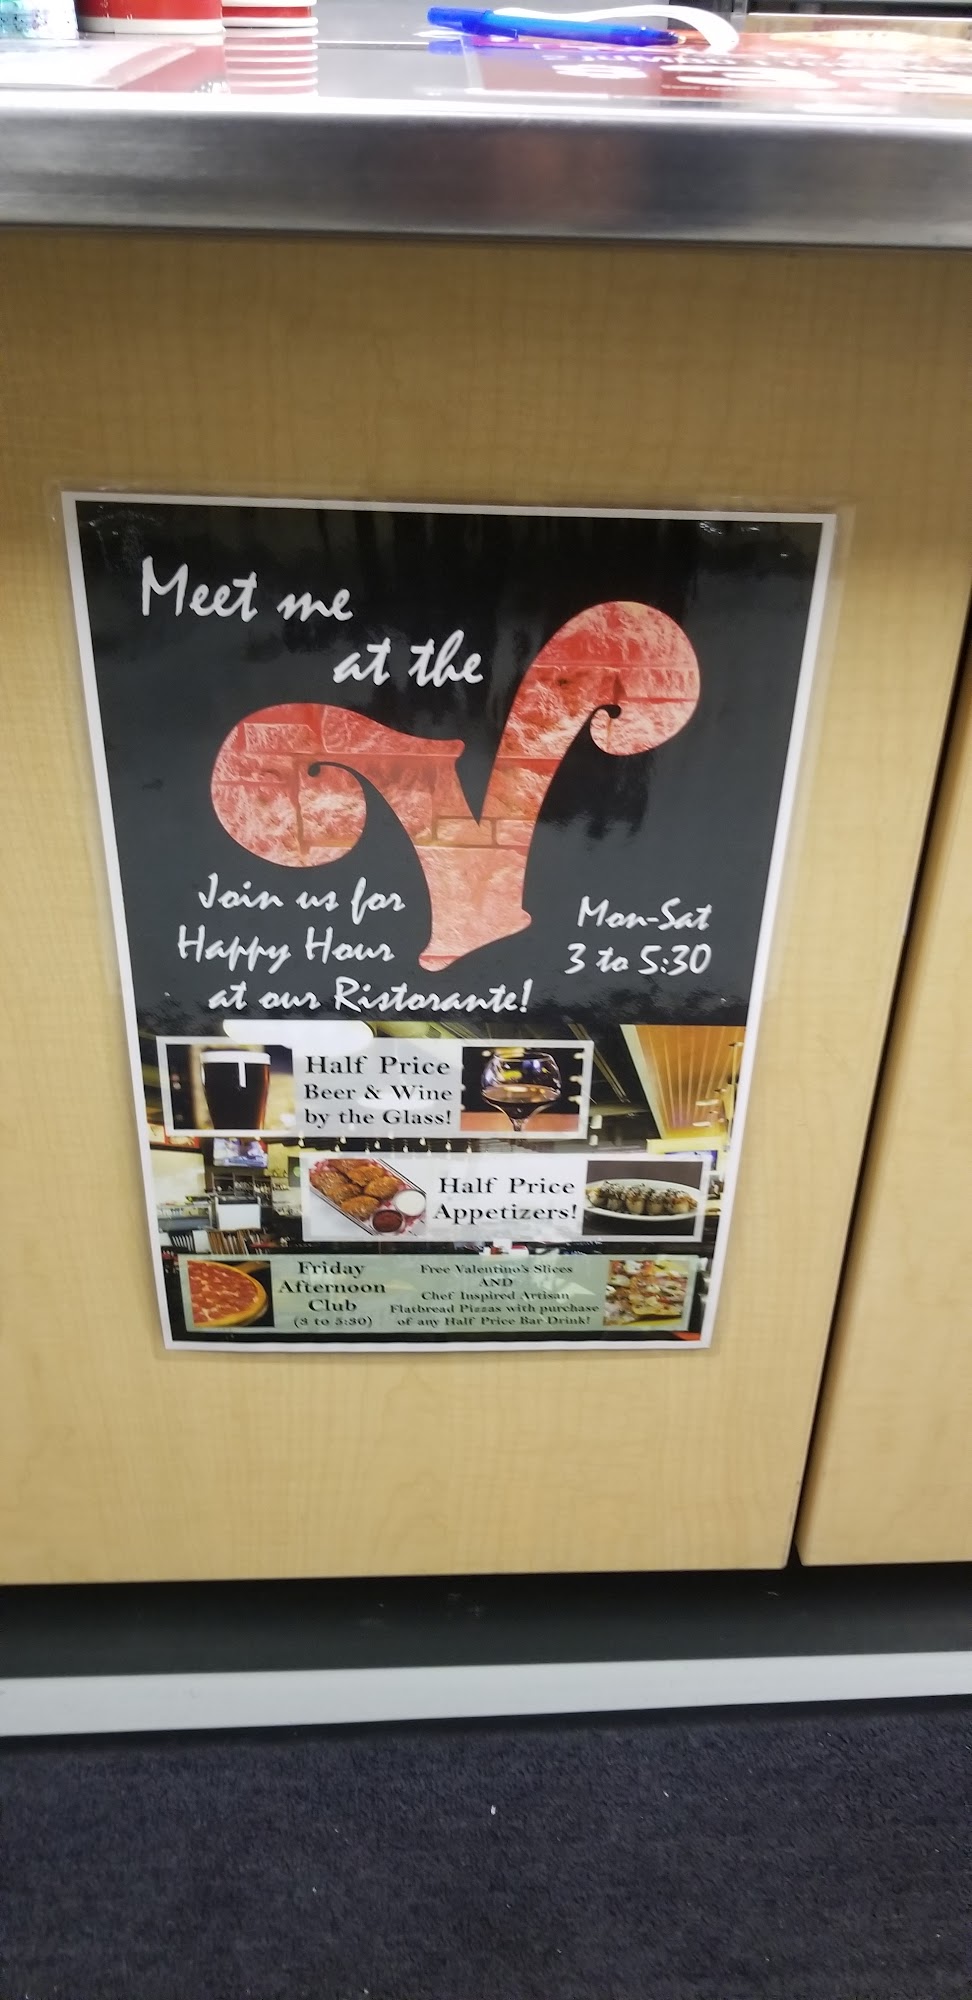 2 JUMBO 1
Meet me
at the
V
Join us for
Happy Hour
at our Ristorante!
Mon-Sat
3 to 5:30
Half Price
Beer & Wine
by the Glass!
Half Price
Appetizers!
Friday
Afternoon
Club
(3 to 5:30)
Free Valentino's Slices
AND
Chef Inspired Artisan
Flatbread Pizzas with purchase
of any Half Price Bar Drink!